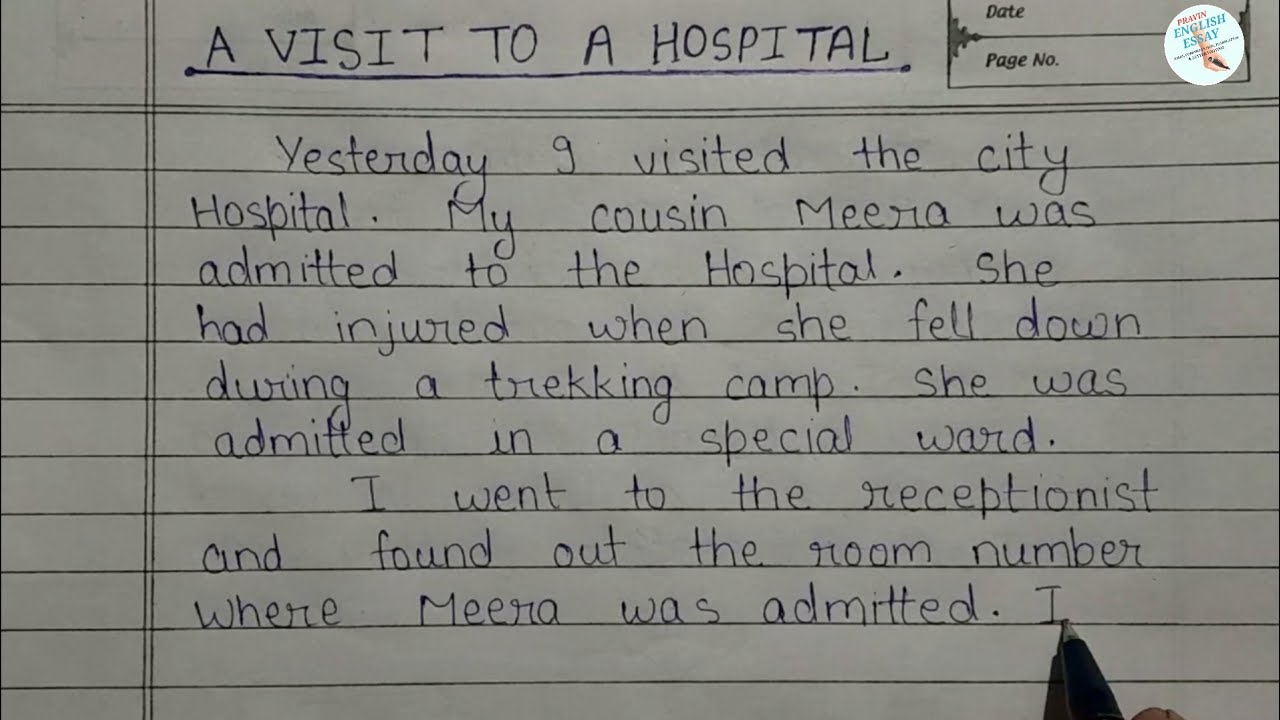 A VISIT TO A HOSPITAL.
Date
Page No.
PRAVIN
ENGLISH
ESSAY
Yesterday I visited the city
Hospital. My cousin Meera was
admitted to the Hospital. She
had injured when she fell down
during a trekking camp. She was
admitted in a special ward.
I went to the receptionist
and found out the room number
where Meera was admitted. I